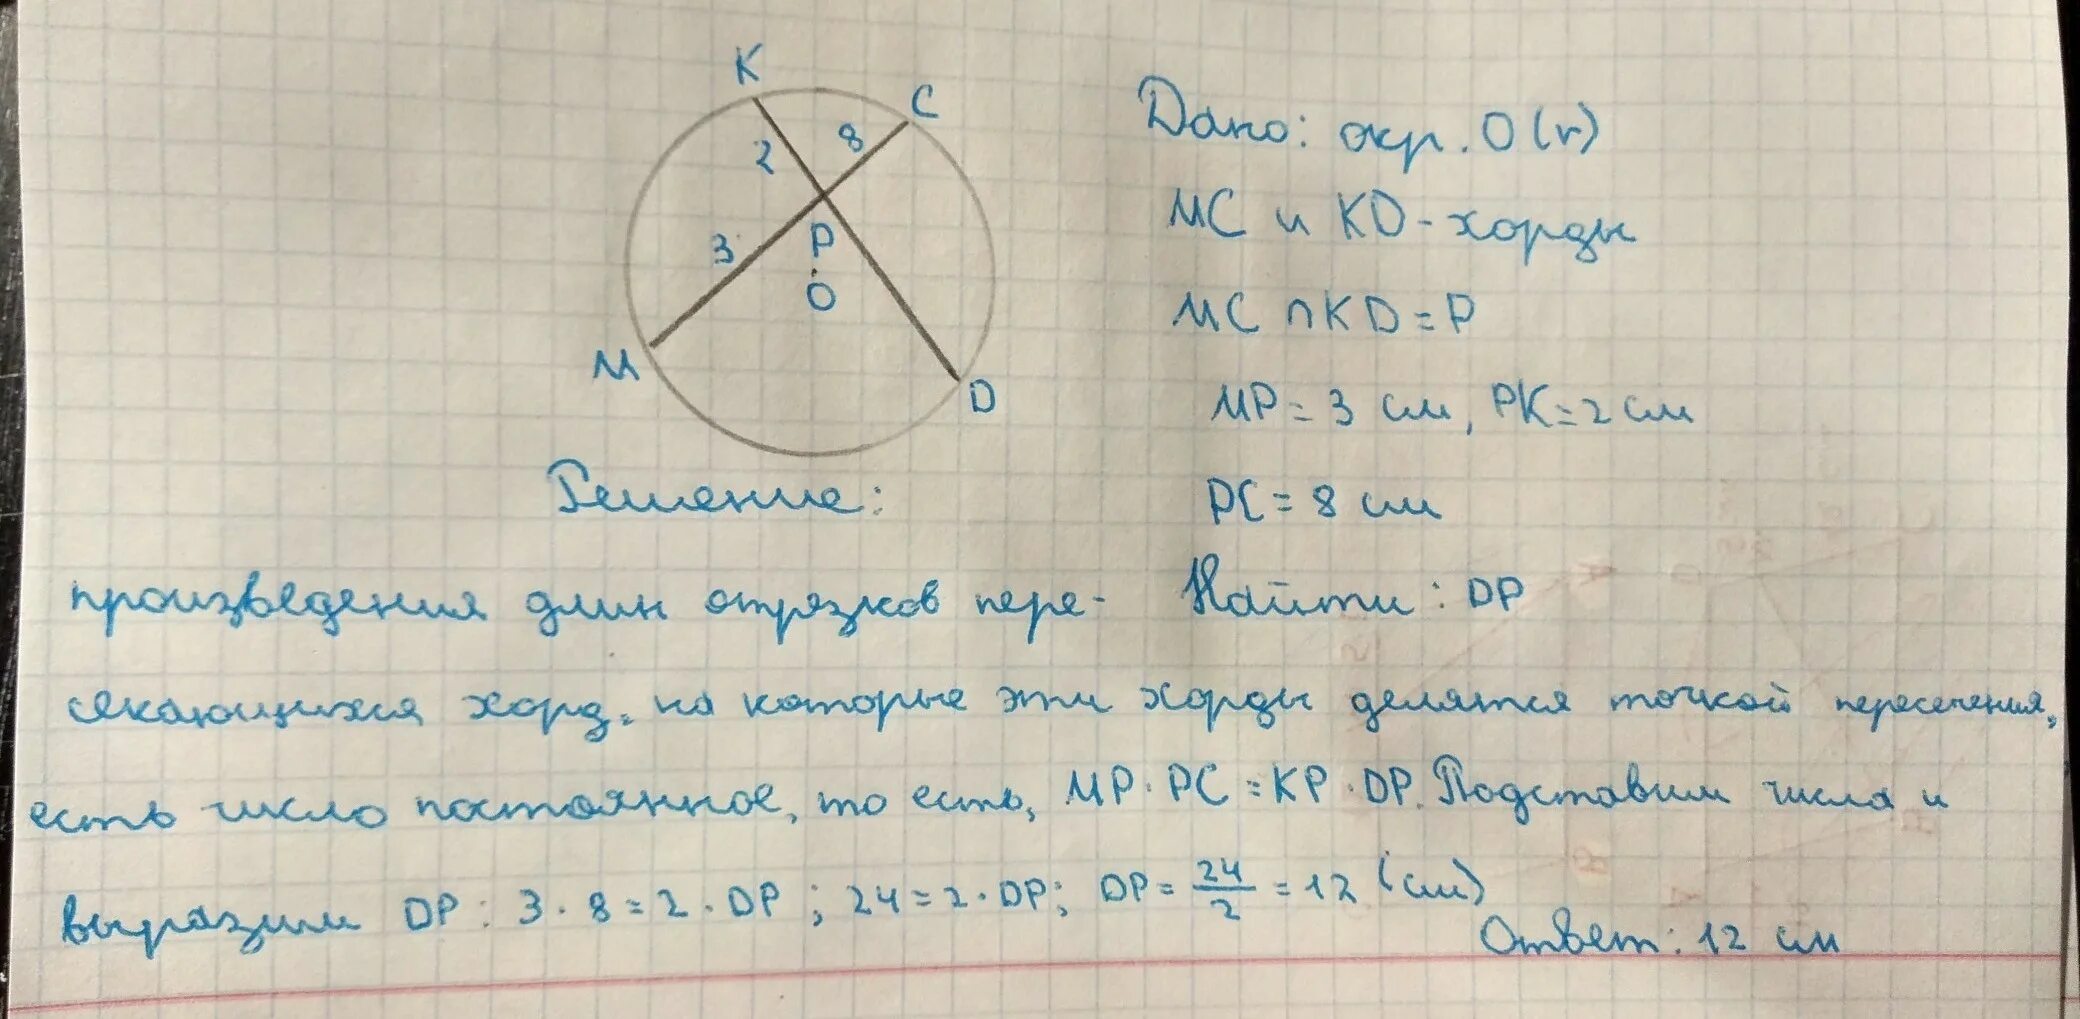 K
C
2
8
3
P
O
M
D
Дано: окр. O(r)
MC и KD - хорды
MC ∩ KD = P
MP = 3 см, PK = 2 см
PC = 8 см
Найти: DP
Решение:
произведения длин отрезков пере-
секающихся хорд, на которые эти хорды делятся точкой пересечения,
есть число постоянное, то есть, MP · PC = KP · DP. Подставим числа и
выразим DP: 3 · 8 = 2 · DP; 24 = 2 · DP; DP = 24/2 = 12 (см)
Ответ: 12 см